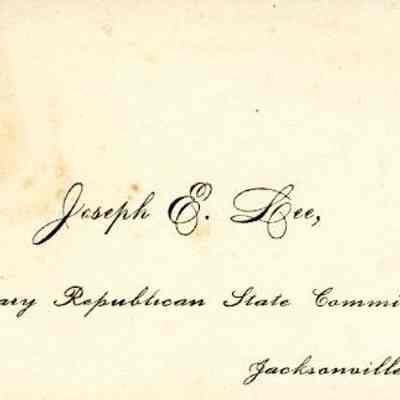 Joseph E. Lee,
ary Republican State Commi
Jacksonville